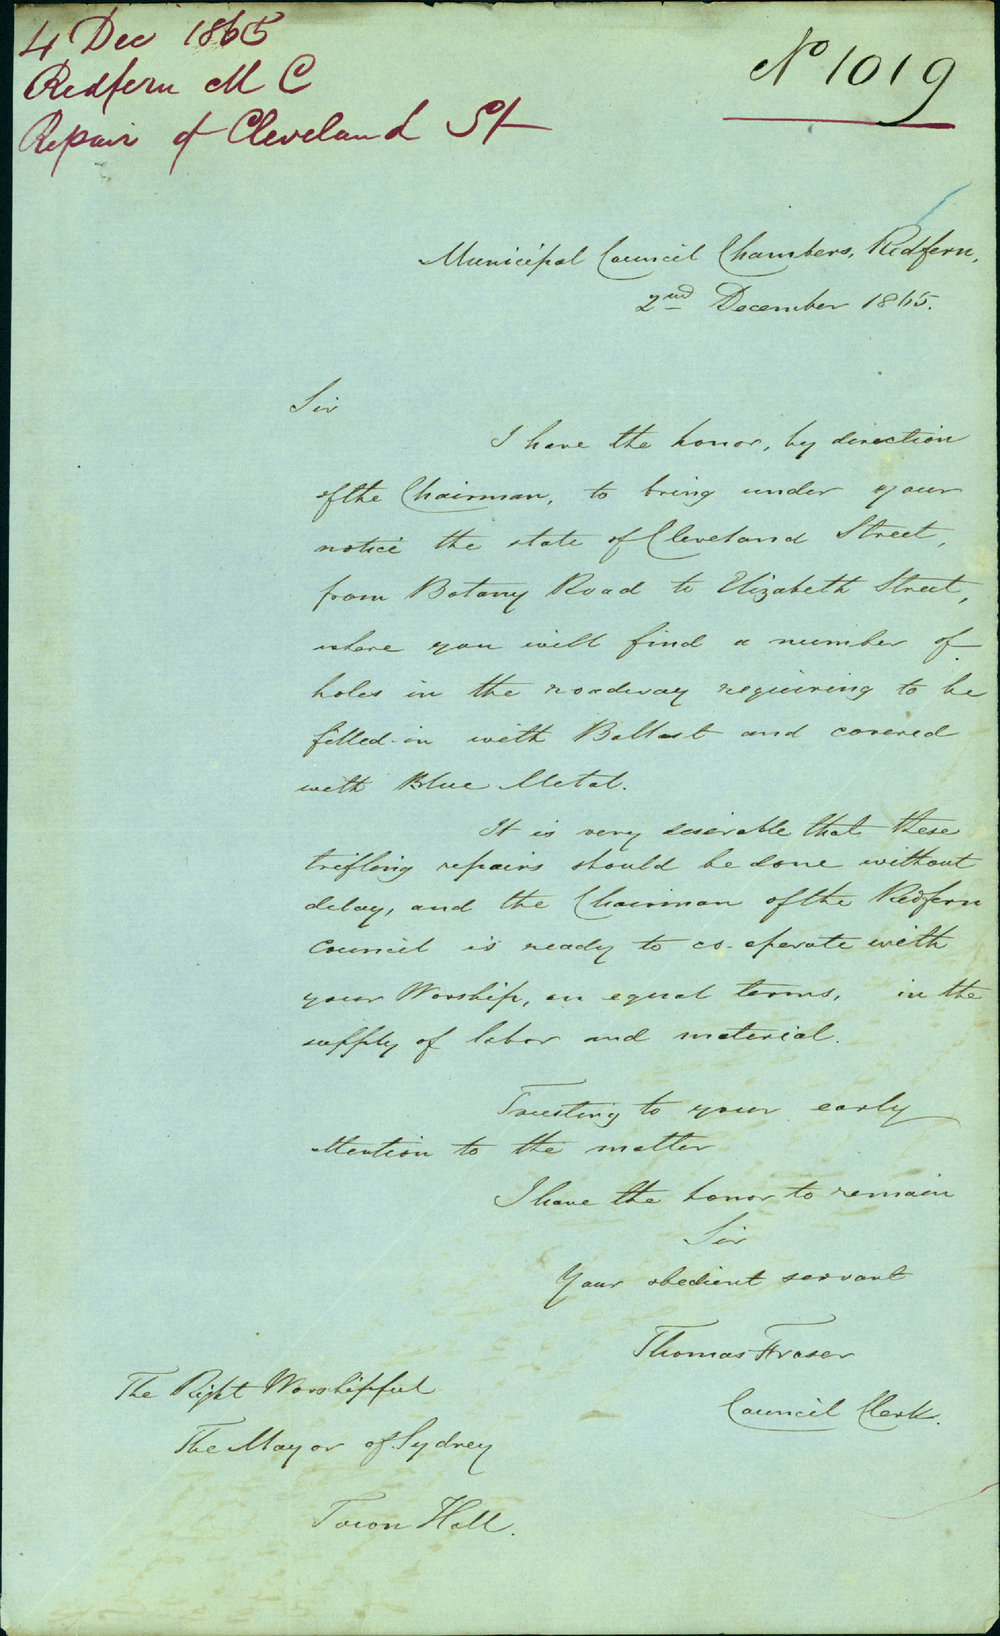 4 Dec 1865
Redfern M C
Repair of Cleveland St
No 1019
Municipal Council Chambers, Redfern,
2nd December 1865.
Sir
I have the honor, by direction
of the Chairman, to bring under your
notice the state of Cleveland Street,
from Botany Road to Elizabeth Street,
where you will find a number of
holes in the roadway requiring to be
filled-in with Ballast and covered
with Blue Metal.
It is very desirable that these
trifling repairs should be done without
delay, and the Chairman of the Redfern
Council is ready to co-operate with
your Worship, on equal terms, in the
supply of labor and material.
Trusting to your early
attention to the matter
I have the honor to remain
Sir
Your obedient servant
Thomas Fraser
Council Clerk.
The Right Worshipful
The Mayor of Sydney
Town Hall.